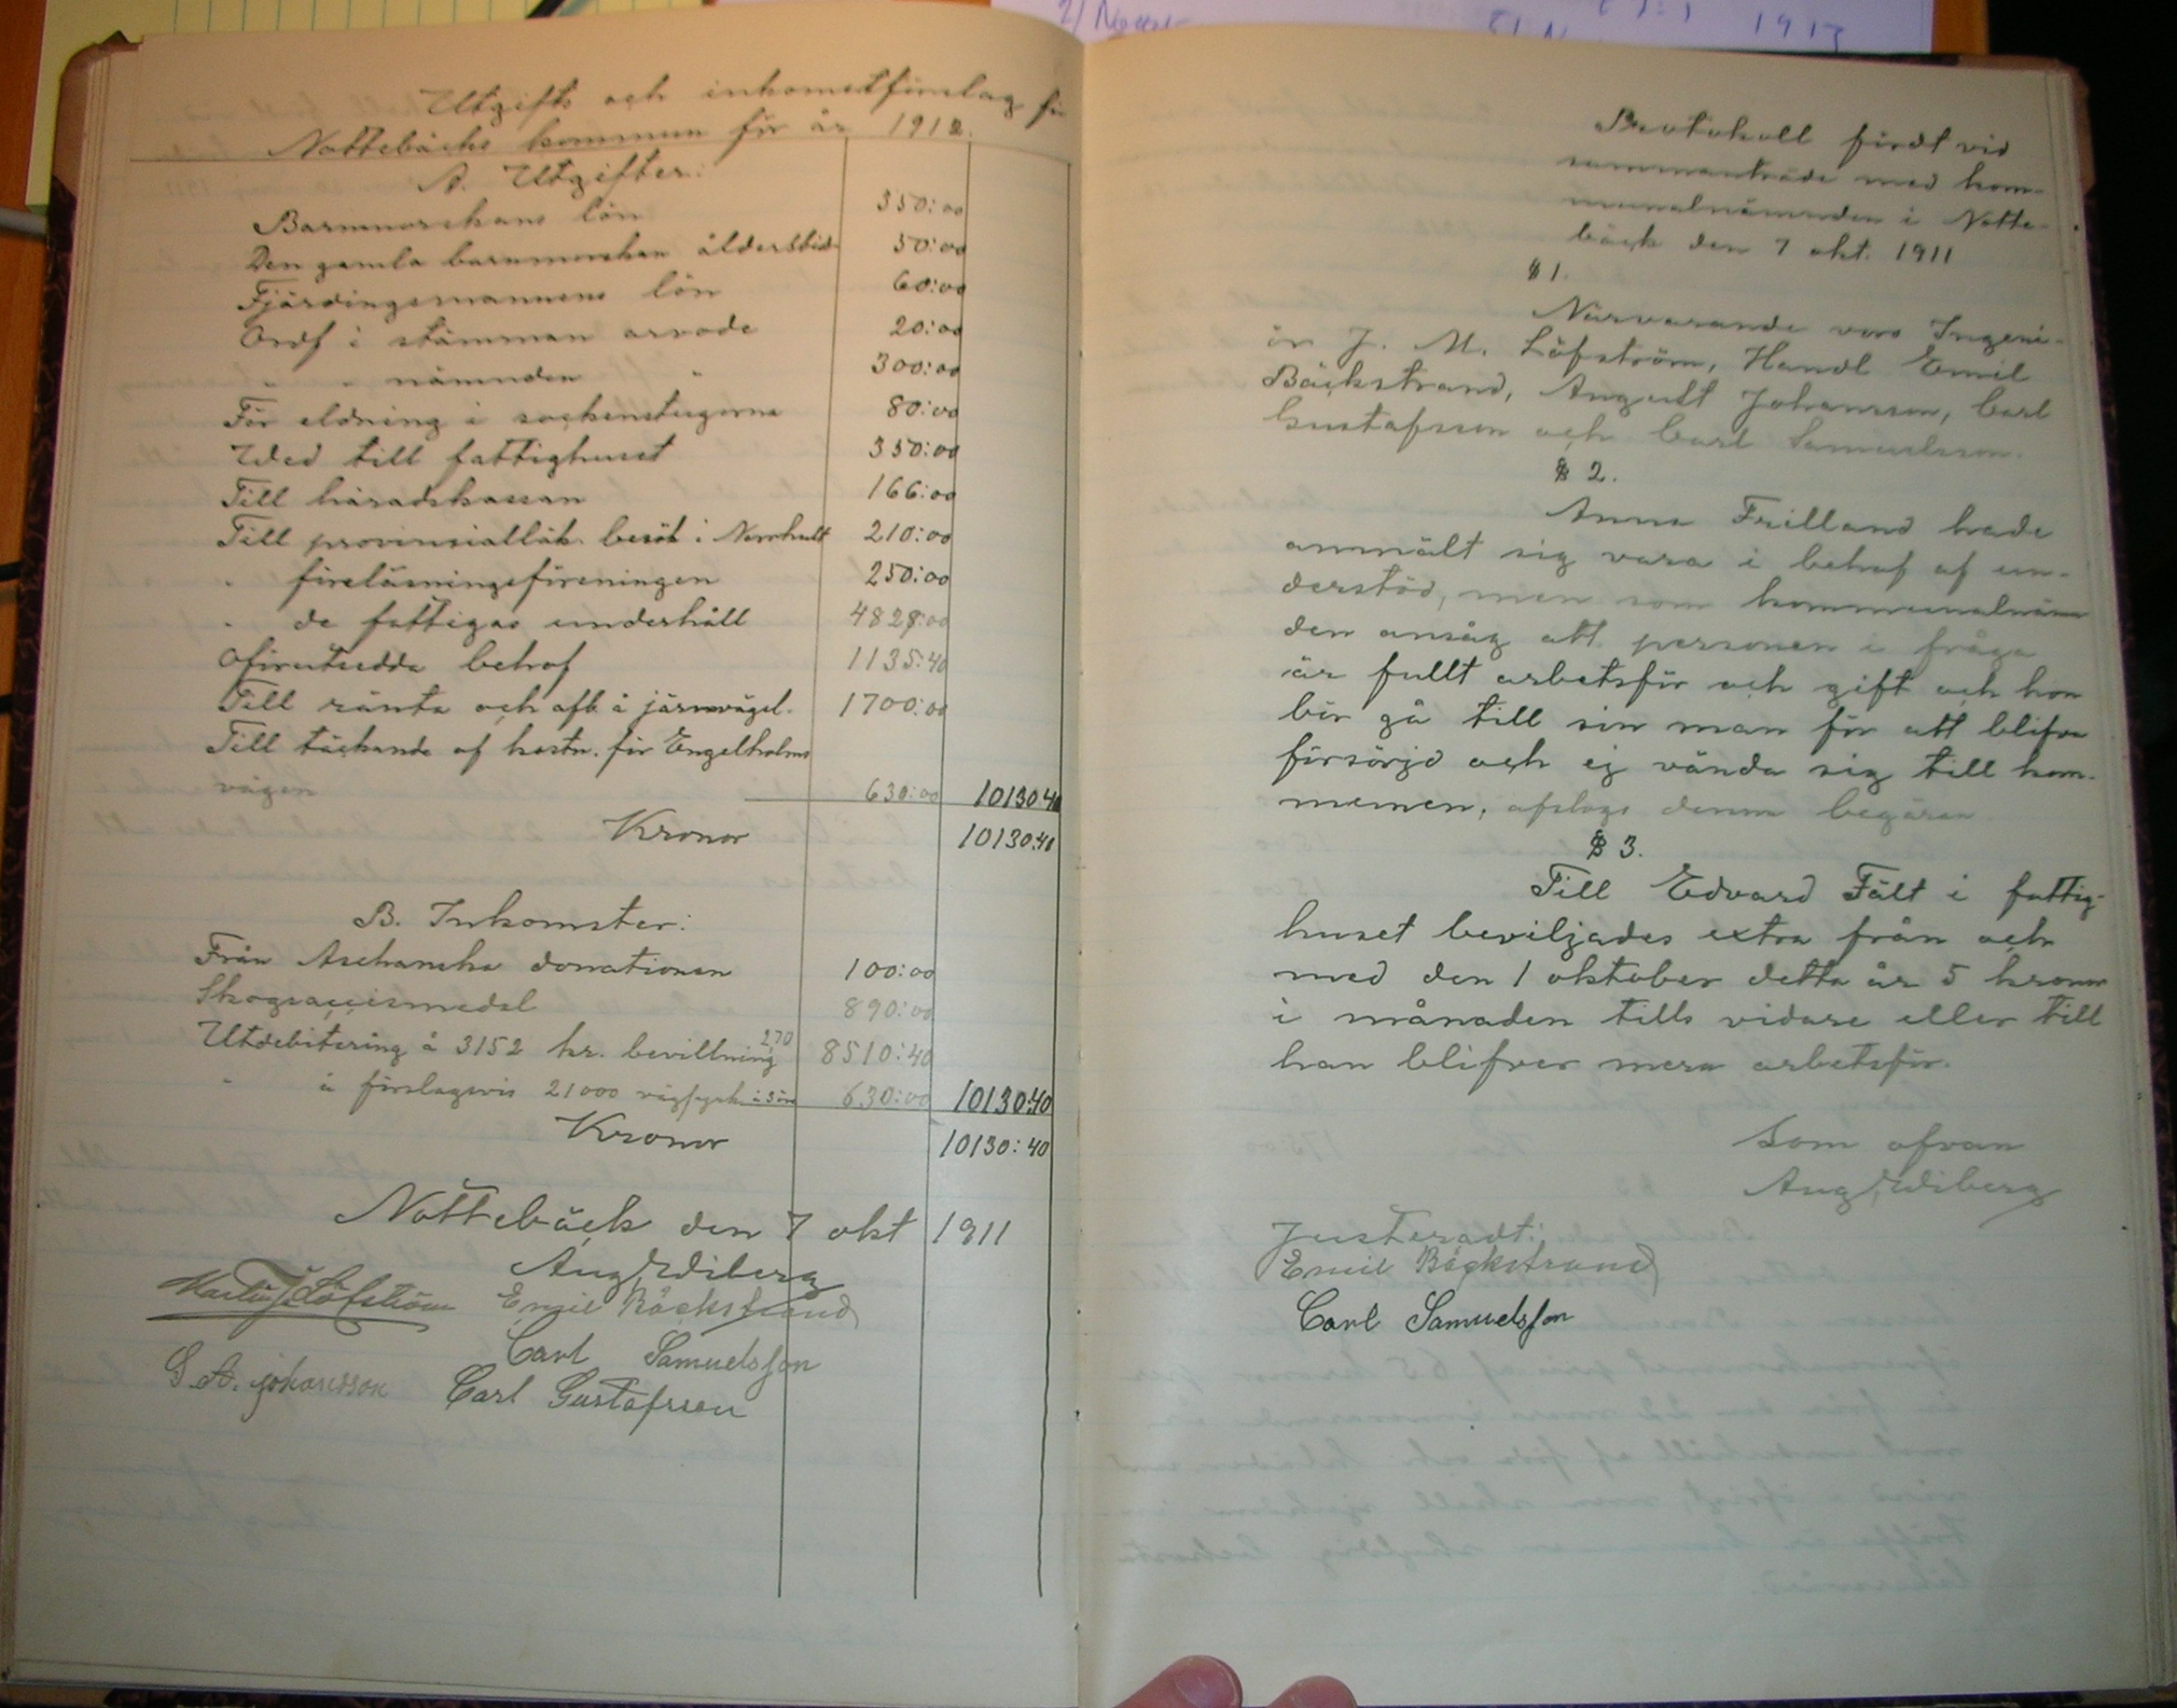 21
1913
Utgifts och inkomstförslag för
Nottebäcks kommun för år 1912.
A. Utgifter:
Barnmorskans lön 350:00
Den gamla barnmorskan ålderstid. 50:00
Fjärdingsmannens lön 60:00
Ordf i stämman arvode 20:00
" " nämnden " 300:00
För eldning i sockenstugorna 80:00
Wed till fattighuset 350:00
Till häradskassan 166:00
Till provinsialläk. besök i Norrhult 210:00
" föreläsningsföreningen 250:00
" de fattigas underhåll 4829:00
Oförutsedda behof 1135:40
Till ränta och afb. å järnvägsl. 1700:00
Till täckande af kostn. för Engelholms
vägen 630:00 10130:40
Kronor 10130:40
B. Inkomster:
Från Aschanska donationen 100:00
Skogsaccismedel 890:00
Utdebitering å 3152 kr. bevillning 2,70 8510:40
" å förslagsvis 21000 vägfyrk. à 3 öre 630:00 10130:40
Kronor 10130:40
Nottebäck den 7 okt 1911
Aug Wiberg
Martin J Löfström Emil Bäckstrand
Carl Samuelsson
G. A. johansson Carl Gustafsson
Protokoll fördt vid
sammanträde med kom-
munalnämnden i Notte-
bäck den 7 okt. 1911
§ 1.
Närvarande voro Ingeni-
ör J. M. Löfström, Handl Emil
Bäckstrand, August Johansson, Carl
Gustafsson och Carl Samuelsson.
§ 2.
Anna Frilland hade
anmält sig vara i behof af un-
derstöd, men som kommunalnämn
den ansåg att personen i fråga
är fullt arbetsför och gift och hon
bör gå till sin man för att blifva
försörjd och ej vända sig till kom-
munen, afslogs denna begäran.
§ 3.
Till Edvard Fält i fattig-
huset beviljades extra från och
med den 1 oktober detta år 5 kronor
i månaden tills vidare eller till
han blifver mera arbetsför.
Som ofvan
Aug Wiberg
Justeradt:
Emil Bäckstrand
Carl Samuelsson